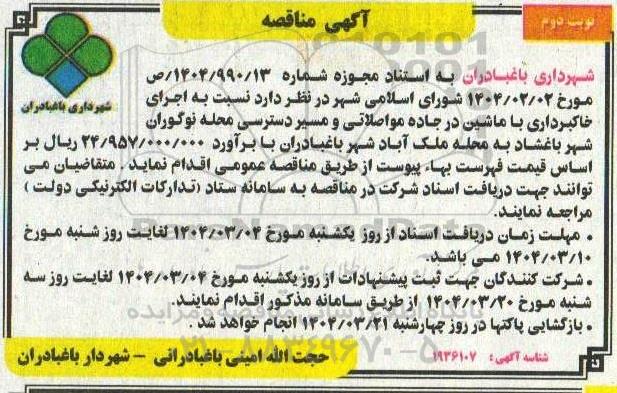 آگهی مناقصه
نوبت دوم
شهرداری باغبادران
شهرداری باغبادران به استناد مجوزه شماره ۱۴۰۴/۹۹۰/۱۳/ص
مورخ ۱۴۰۴/۰۲/۰۲ شورای اسلامی شهر در نظر دارد نسبت به اجرای
خاکبرداری با ماشین در جاده مواصلاتی و مسیر دسترسی محله نوگوران
شهر باغشاد به محله ملک آباد شهر باغبادران با برآورد ۲۴/۹۵۷/۰۰۰/۰۰۰ ریال بر
اساس قیمت فهرست بهاء پیوست از طریق مناقصه عمومی اقدام نماید . متقاضیان می
توانند جهت دریافت اسناد شرکت در مناقصه به سامانه ستاد (تدارکات الکترنیکی دولت )
مراجعه نمایند.
• مهلت زمان دریافت اسناد از روز یکشنبه مورخ ۱۴۰۴/۰۳/۰۴ لغایت روز شنبه مورخ
۱۴۰۴/۰۳/۱۰ می باشد.
• شرکت کنندگان جهت ثبت پیشنهادات از روز یکشنبه مورخ ۱۴۰۴/۰۳/۰۴ لغایت روز سه
شنبه مورخ ۱۴۰۴/۰۳/۲۰ از طریق سامانه مذکور اقدام نمایند.
• بازگشایی پاکتها در روز چهارشنبه ۱۴۰۴/۰۳/۲۱ انجام خواهد شد .
شناسه آگهی: ۱۹۳۶۱۰۷
حجت الله امینی باغبادرانی - شهردار باغبادران